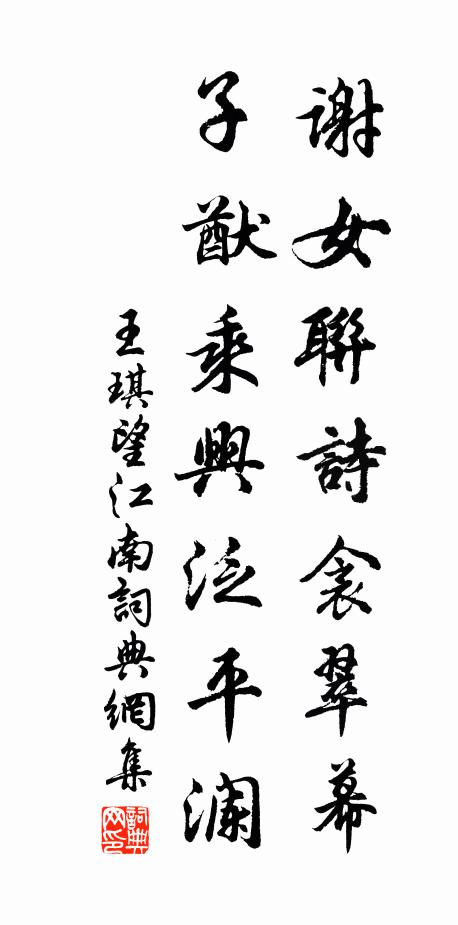 謝女聯詩衾翠幕
子猷乘興泛平瀾
王琪望江南詞典網集
詞典網印